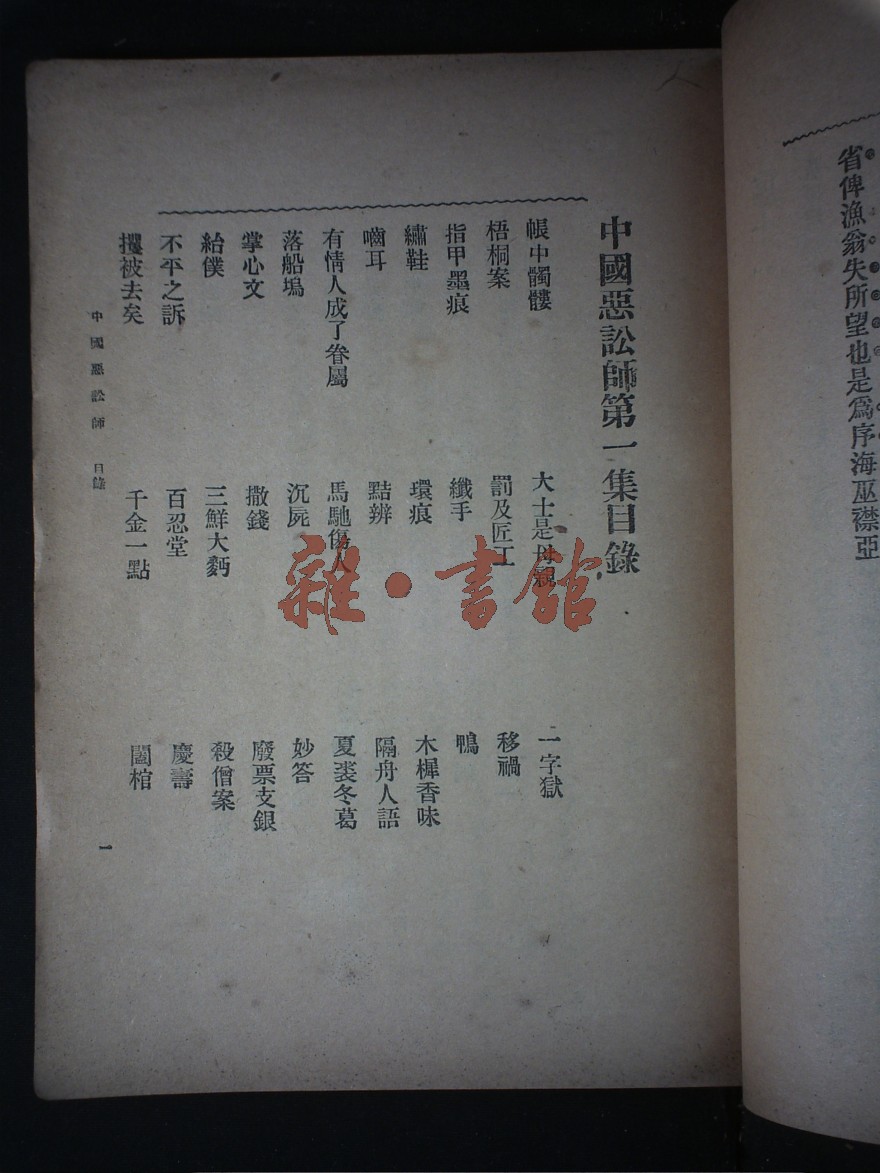 省俾漁翁失所望也是爲序海巫襟亞
中國惡訟師第一集目錄
帳中髑髏 大士是母親 一字獄
梧桐案 罰及匠工 移禍
指甲墨痕 纖手 鴨
繡鞋 環痕 木樨香味
嚙耳 黠辨 隔舟人語
有情人成了眷屬 馬馳傷人 夏裘冬葛
落船塢 沉屍 妙答
掌心文 撒錢 廢票支銀
紿僕 三鮮大麪 殺僧案
不平之訴 百忍堂 慶壽
攫被去矣 千金一點 闔棺
中國惡訟師 目錄
一
雜·書館